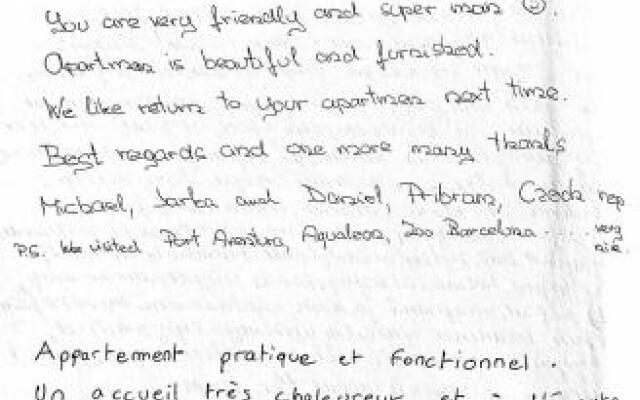 You are very friendly and super man ☺.
Apartmen is beautiful and furnished.
We like return to your apartmen next time.
Best regards and one more many thanks
Michael, Jarka and Daniel, Pribram, Czech rep
P.S. We visited Port Aventura, Aqualeon, Zoo Barcelona ..... very nice.
Appartement pratique et fonctionnel.
Un accueil très chaleureux et à